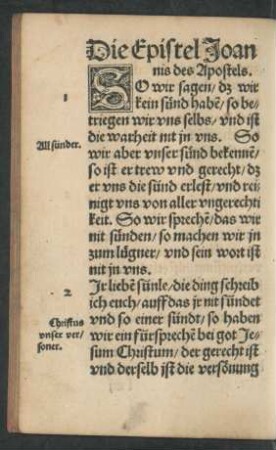 Die Epistel Joan
nis des Apostels.
1
SO wir sagen / dz wir
kein sünd habē / so be-
triegen wir vns selbs / vnd ist
die warheit nit jn vns. So
All sünder.
wir aber vnser sünd bekennē /
so ist er trew vnd gerecht / dz
er vns die sünd erlest / vnd rei
nigt vns von aller vngerechti
keit. So wir sprechē / das wir
nit sünden / so machen wir jn
zum lügner / vnd sein wort ist
nit jn vns.
2
Jr liebē sünle / die ding schreib
ich euch / auff das jr nit sündet
vnd so einer sündt / so haben
Christus
vnser ver-
soner.
wir ein fürsprechē bei got Je-
sum Christum / der gerecht ist
vnd derselb ist die versönung